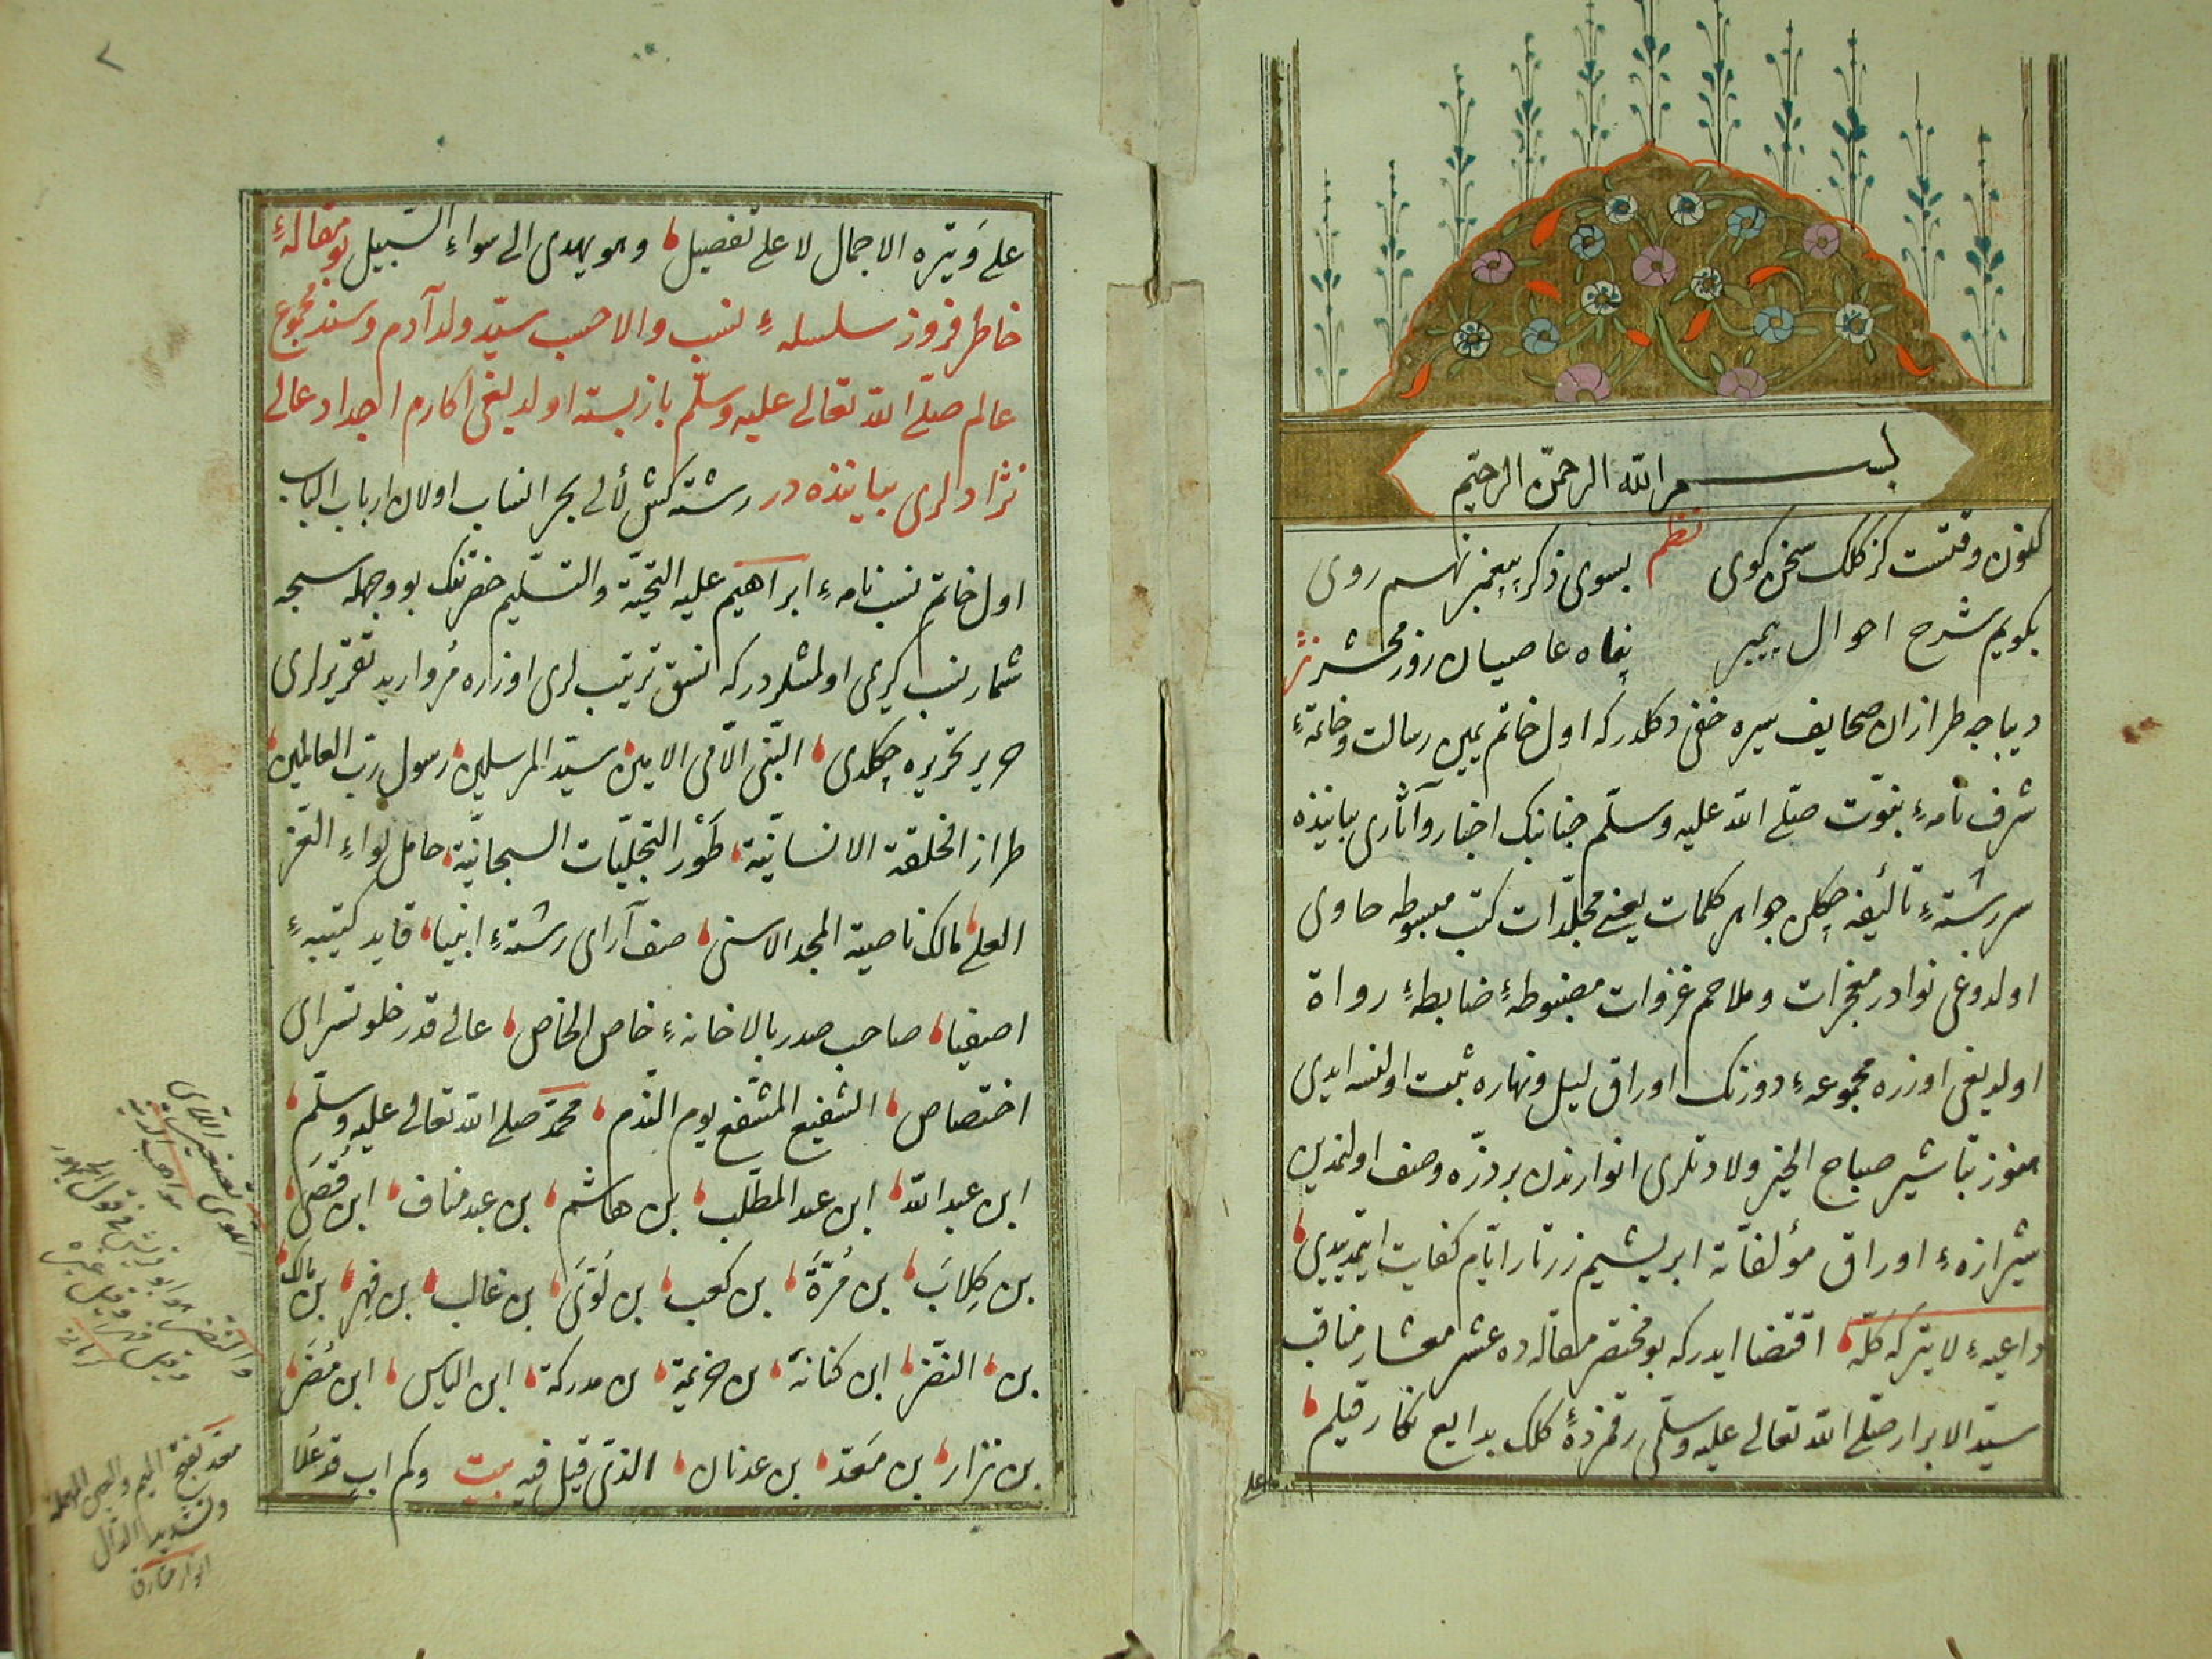 بسم الله الرحمن الرحیم
نظم
کنون وقتست کز کلک سخن کوی بسوی ذکر پیغمبر نهم روی
بکویم شرح احوال پیمبر پناه عاصیان روز محشر نثر
دیباجه طرازان صحایف سیره خفی دکلدرکه اول خاتم یمین رسالت وخاتمهٔ
شرفنامهٔ نبوّت صلّی الله علیه وسلّم جنابنک اخبار وآثاری بیاننده
سررشتهٔ تألیفه چکیلن جواهر کلمات یعنی مجلّدات کتب مبسوطه حاوی
اولدوغی نوادر معجزات وملاحم غزوات مضبوطهٔ ضابطهٔ رواة
اولدیغی اوزره مجموعهٔ دورنک اوراق لیل ونهاره ثبت اولنسه ایدی
هنوز تباشیر صباح الخیر ولادتلری انوارندن بر ذرّه وصف اولنمدین
شیرازهٔ اوراق مؤلفاته ابریشیم زرتار ایّام کفایت ایتمدییدی
داعیهٔ لا یترک کلّه اقتضا ایدرکه بو مختصر مقالهده عشر معشار مناقب
سیّد الابرار صلّی الله تعالی علیه وسلّمی رقمزدهٔ کلک بدایع نکار قیلم
علی
علی وتیره الاجمال لا علی تفصیل وهو یهدی الی سواء السّبیل بو مقالهٔ
خاطر فروز سلسلهٔ نسب والا حسب سیّد ولد آدم وسند مجموع
عالم صلّی الله تعالی علیه وسلّم بازبسته اولدیغی اکارم اجداد عالی
نژادلری بیاننده در رشته کش لألی بحر انساب اولان ارباب الباب
اول خاتم نسبنامهٔ ابراهیم علیه التحیّة والتسلیم حضرتنک بو وجهله سبحه
شمار نسب کریمی اولمشلردرکه انسق ترتیبلری اوزاره مروارید تقریرلری
حریر تحریره چکلدی النّبی الاّمی الامین سیّد المرسلین رسول ربّ العالمین
طراز الخلقة الانسانیّة طور التجلیّات السبحانیّة حامل لواء العّز
العلی مالک ناصیة المجد الاسنی صف آرای رشتهٔ انبیا قاید کتیبهٔ
اصفیا صاحب صدر بالاخانهٔ خاص الخاص عالی قدر خلوتسرای
اختصاص الشفیع المشفع یوم النّدم محمّد صلی الله تعالی علیه وسلّم
ابن عبدالله ابن عبدالمطلّب بن هاشم بن عبدمناف ابن قصی
بن کِلابَ بن مُرَّة بن کعب بن لُوَیَ بن غالب بن فهر بن مالک
بن النضر ابن کنانة بن خزیمة بن مدرکة ابن الیاس ابن مُضَر
بن نزار بن مَعَدّ بن عدنان الذی قیل فیه بیت وکم ابٍ قد عَلا
اللوی تصغیر اللای
مواهب لدنیه
والنضر هو ابو قریش فی قول الجمهور
وقیل فهر وقیل غیره
کرمانی
معد بفتح المیم والعین المهملة
وتشدید الدال